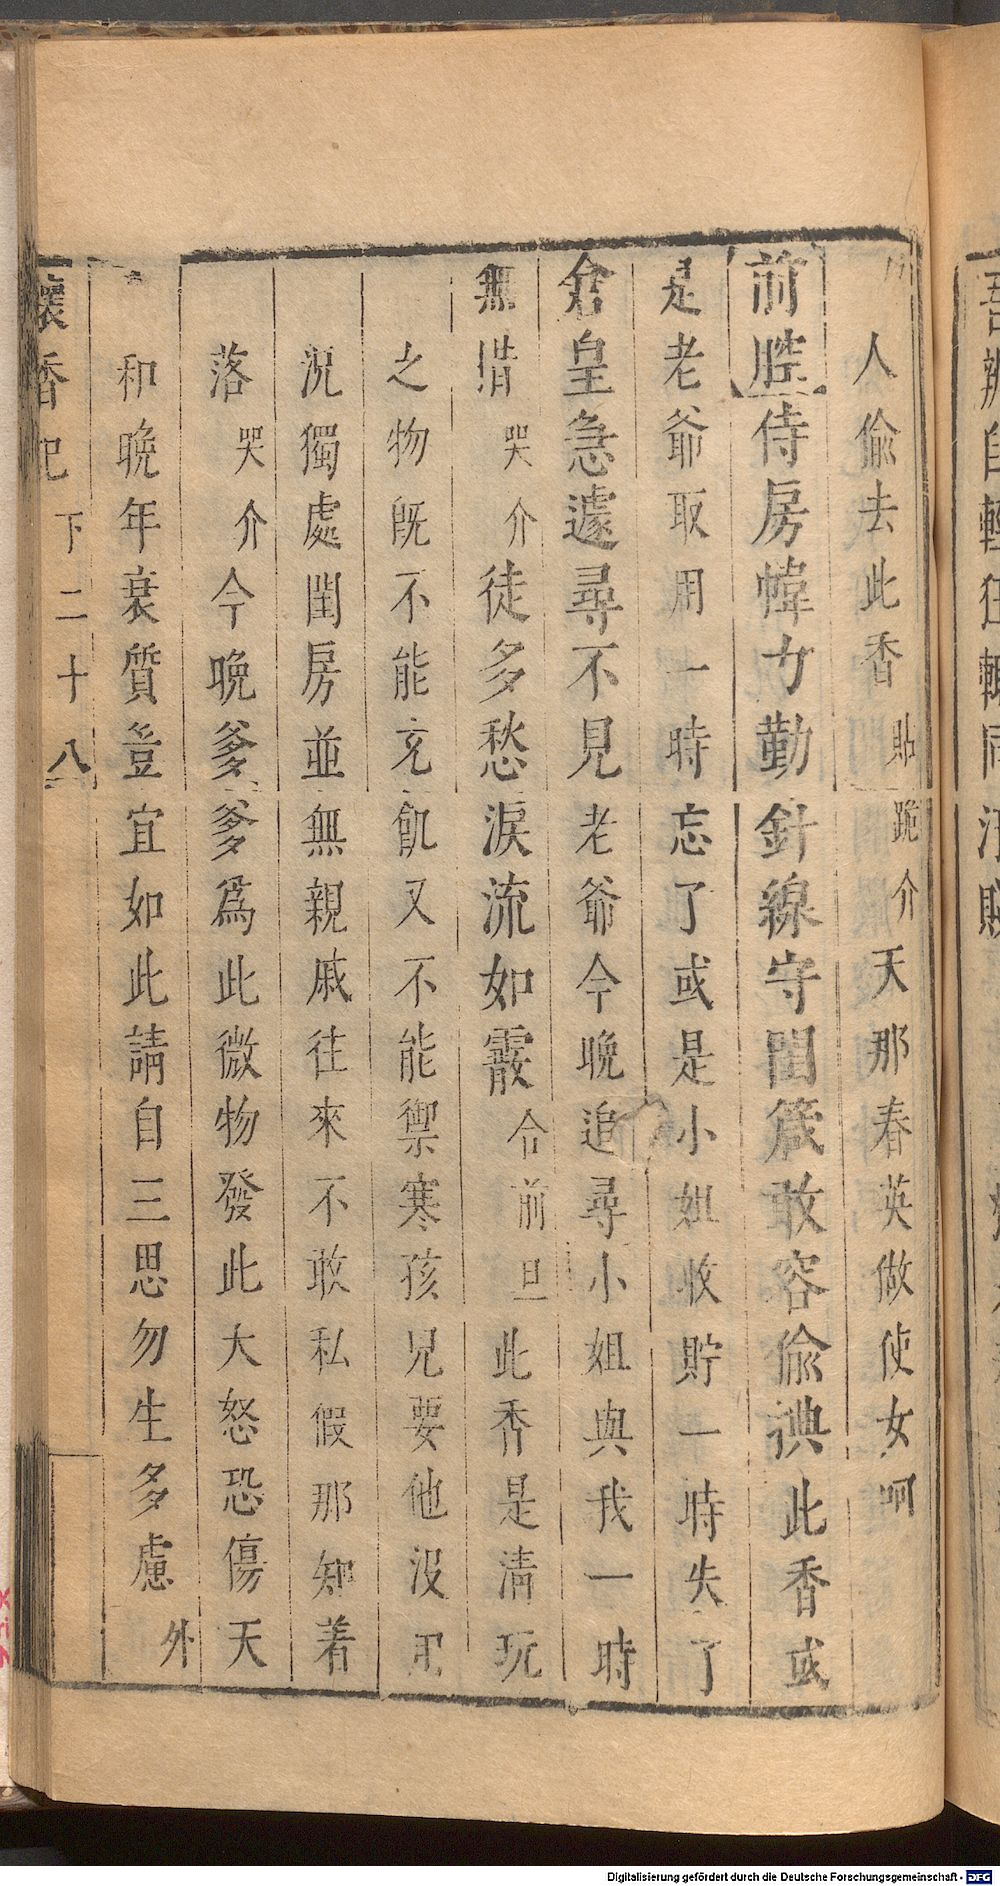 人偷去此香貼跪介天那春英做使女呵
前腔侍房幃力勤針線守閨箴敢容偷㒇此香或
是老爺取用一時忘了或是小姐收貯一時失了
倉皇急遽尋不見老爺今晚追尋小姐與我一時
無措哭介徒多愁淚流如霰合前旦此香是清玩
之物既不能充飢又不能禦寒孩兒要他沒用
況獨處閨房並無親戚往來不敢私假那知着
落哭介今晚爹爹為此微物發此大怒恐傷天
和晚年衰質豈宜如此請自三思勿生多慮外
懷香記
下二十八
Digitalisierung gefördert durch die Deutsche Forschungsgemeinschaft - DFG